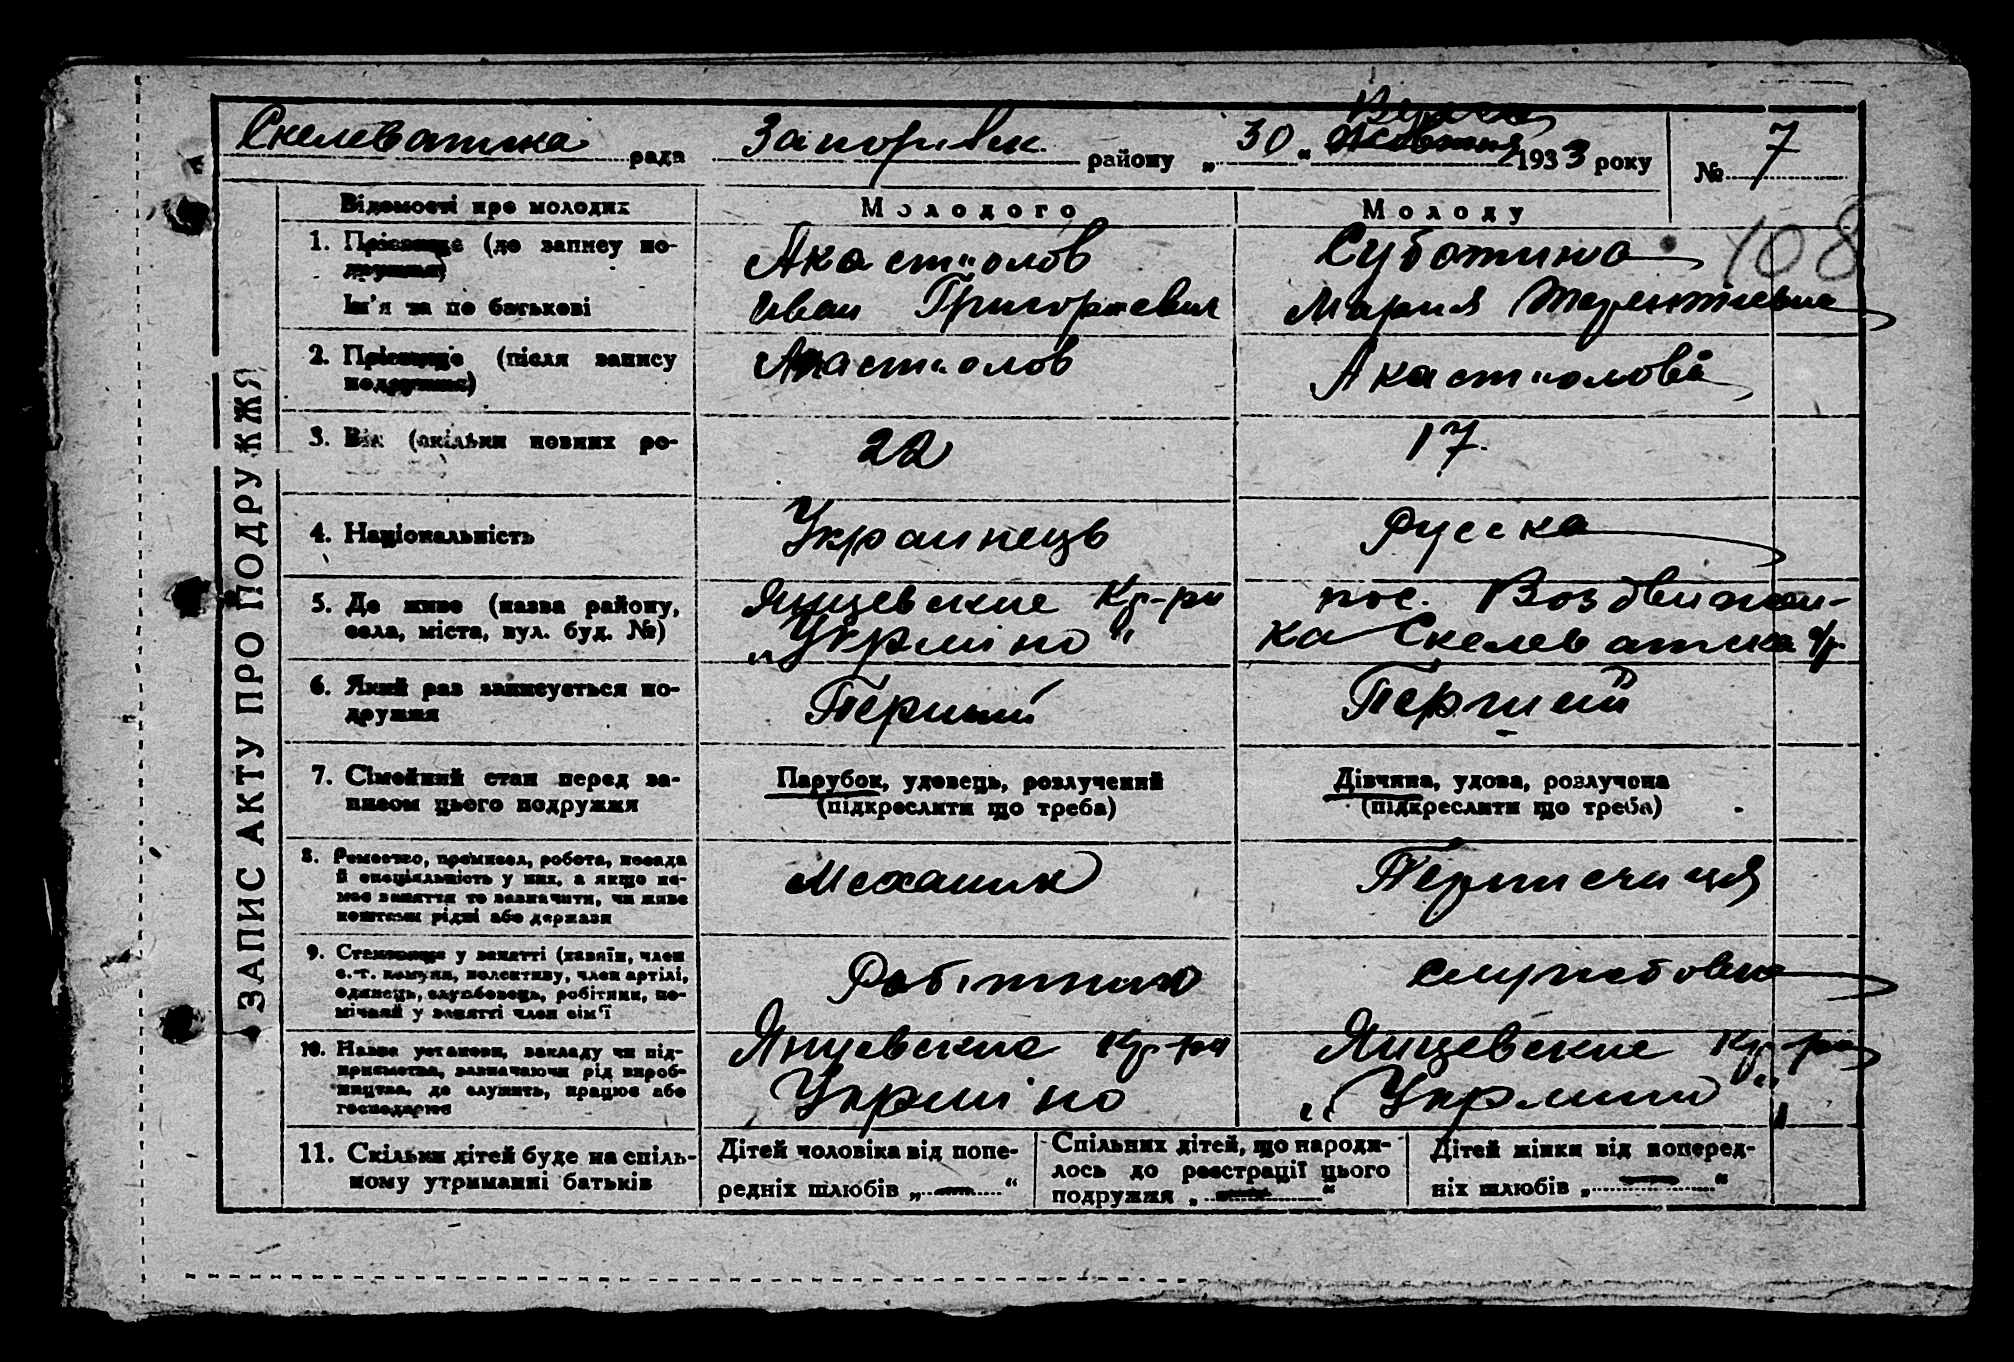 Скелеватська рада Запорізьк. району „30“ 1933 року № 7
108
ЗАПИС АКТУ ПРО ПОДРУЖЖЯ
Відомості про молодих
Молодого
Молоду
1. Прізвище (до запису по-
дружжя)
Ім'я та по батькові
Суботина
Иван Григорьевич
Мария Терентіевна
2. Прізвище (після запису
подружжя)
3. Вік (скільки повних ро-
22
17
4. Національність
Украинець
Русска
5. Де живе (назва району,
села, міста, вул. буд. №)
Янцевские Кр-ри
„Укрміно“
пос. Воздвижен-
ка Скелеватска с/р.
6. Який раз записується по-
дружжя
Перший
Перший
7. Сімейний стан перед за-
писом цього подружжя
Парубок, удовець, розлучений
(підкреслити що треба)
Дівчина, удова, розлучена
(підкреслити що треба)
8. Ремество, промисел, робота, посада
й спеціяльність у них, а якщо не-
має заняття то зазначити, чи живе
коштами рідні або держави
Механик
9. Становище у занятті (хазяїн, член
с.-г. комуни, колективу, член артілі,
одинець, службовець, робітник, по-
мічний у занятті член сім'ї
Робітник
службовка
10. Назва установи, закладу чи під-
приємства, зазначаючи рід вироб-
ництва, де служить, працює або
господарює
Янцевские Кр-ри
Укрміно
Янцевские Кр-ри
„Укрмино“
11. Скільки дітей буде на спіль-
ному утриманні батьків
Дітей чоловіка від попе-
редніх шлюбів „—“
Спільних дітей, що народи-
лось до реєстрації цього
подружжя „—“
Дітей жінки від поперед-
ніх шлюбів „—“